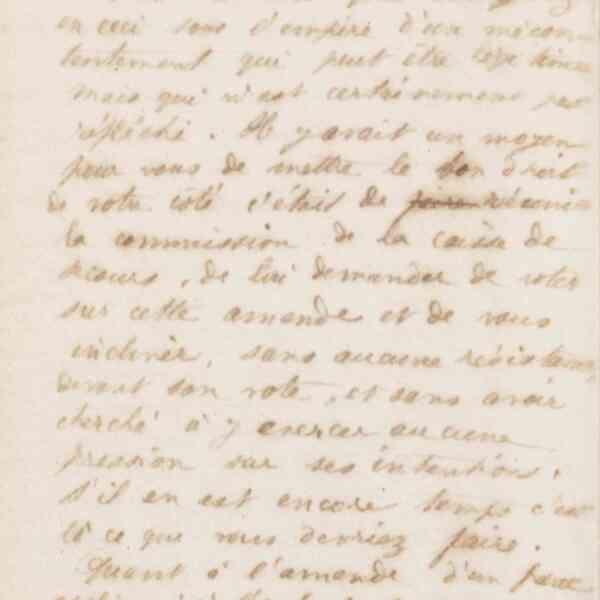 en ceci sous l'empire d'un mécon-
tentement qui peut être légitime
mais qui n'est certainement pas
réfléchi. Il y avait un moyen
pour vous de mettre le bon droit
de votre côté c'était de réunir
la commission de la caisse de
secours, de lui demander de voter
sur cette amende et de vous
incliner, sans aucune résistance,
devant son vote, et sans avoir
cherché à y exercer aucune
pression sur ses intentions.
S'il en est encore temps c'est
là ce que vous devriez faire.
Quant à l'amende d'un franc